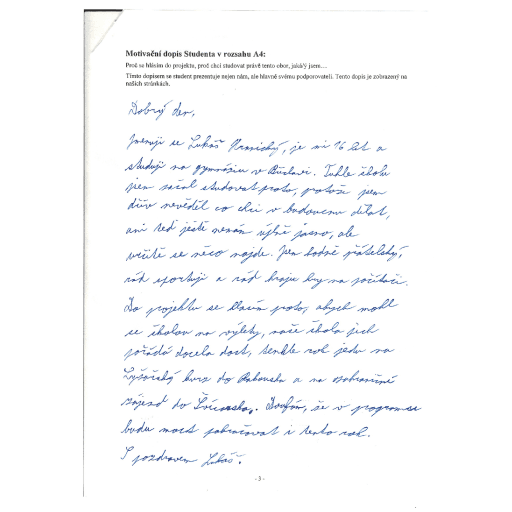 Motivační dopis Studenta v rozsahu A4:
Proč se hlásím do projektu, proč chci studovat právě tento obor, jaká/ý jsem…
Tímto dopisem se student prezentuje nejen nám, ale hlavně svému podporovateli. Tento dopis je zobrazený na
našich stránkách.
Dobrý den,
Jmenuji se Lukáš, je mi 16 let a
studuji na gymnáziu v. Tuhle školu
jsem začal studovat proto, protože jsem
dřív nevěděl co chci v budoucnu dělat,
ani teď ještě nemám úplně jasno, ale
určitě se něco najde. Jsem hodně přátelský,
rád sportuji a rád hraju hry na počítači.
Do projektu se hlásím proto, abych mohl
se školou na výlety, naše škola jich
pořádá docela dost, tenhle rok jedu na
Lyžařský kurz do Rakouska a na
zájezd do. Doufám, že v programu
budu moct pokračovat i tento rok.
S pozdravem Lukáš.
- 3 -